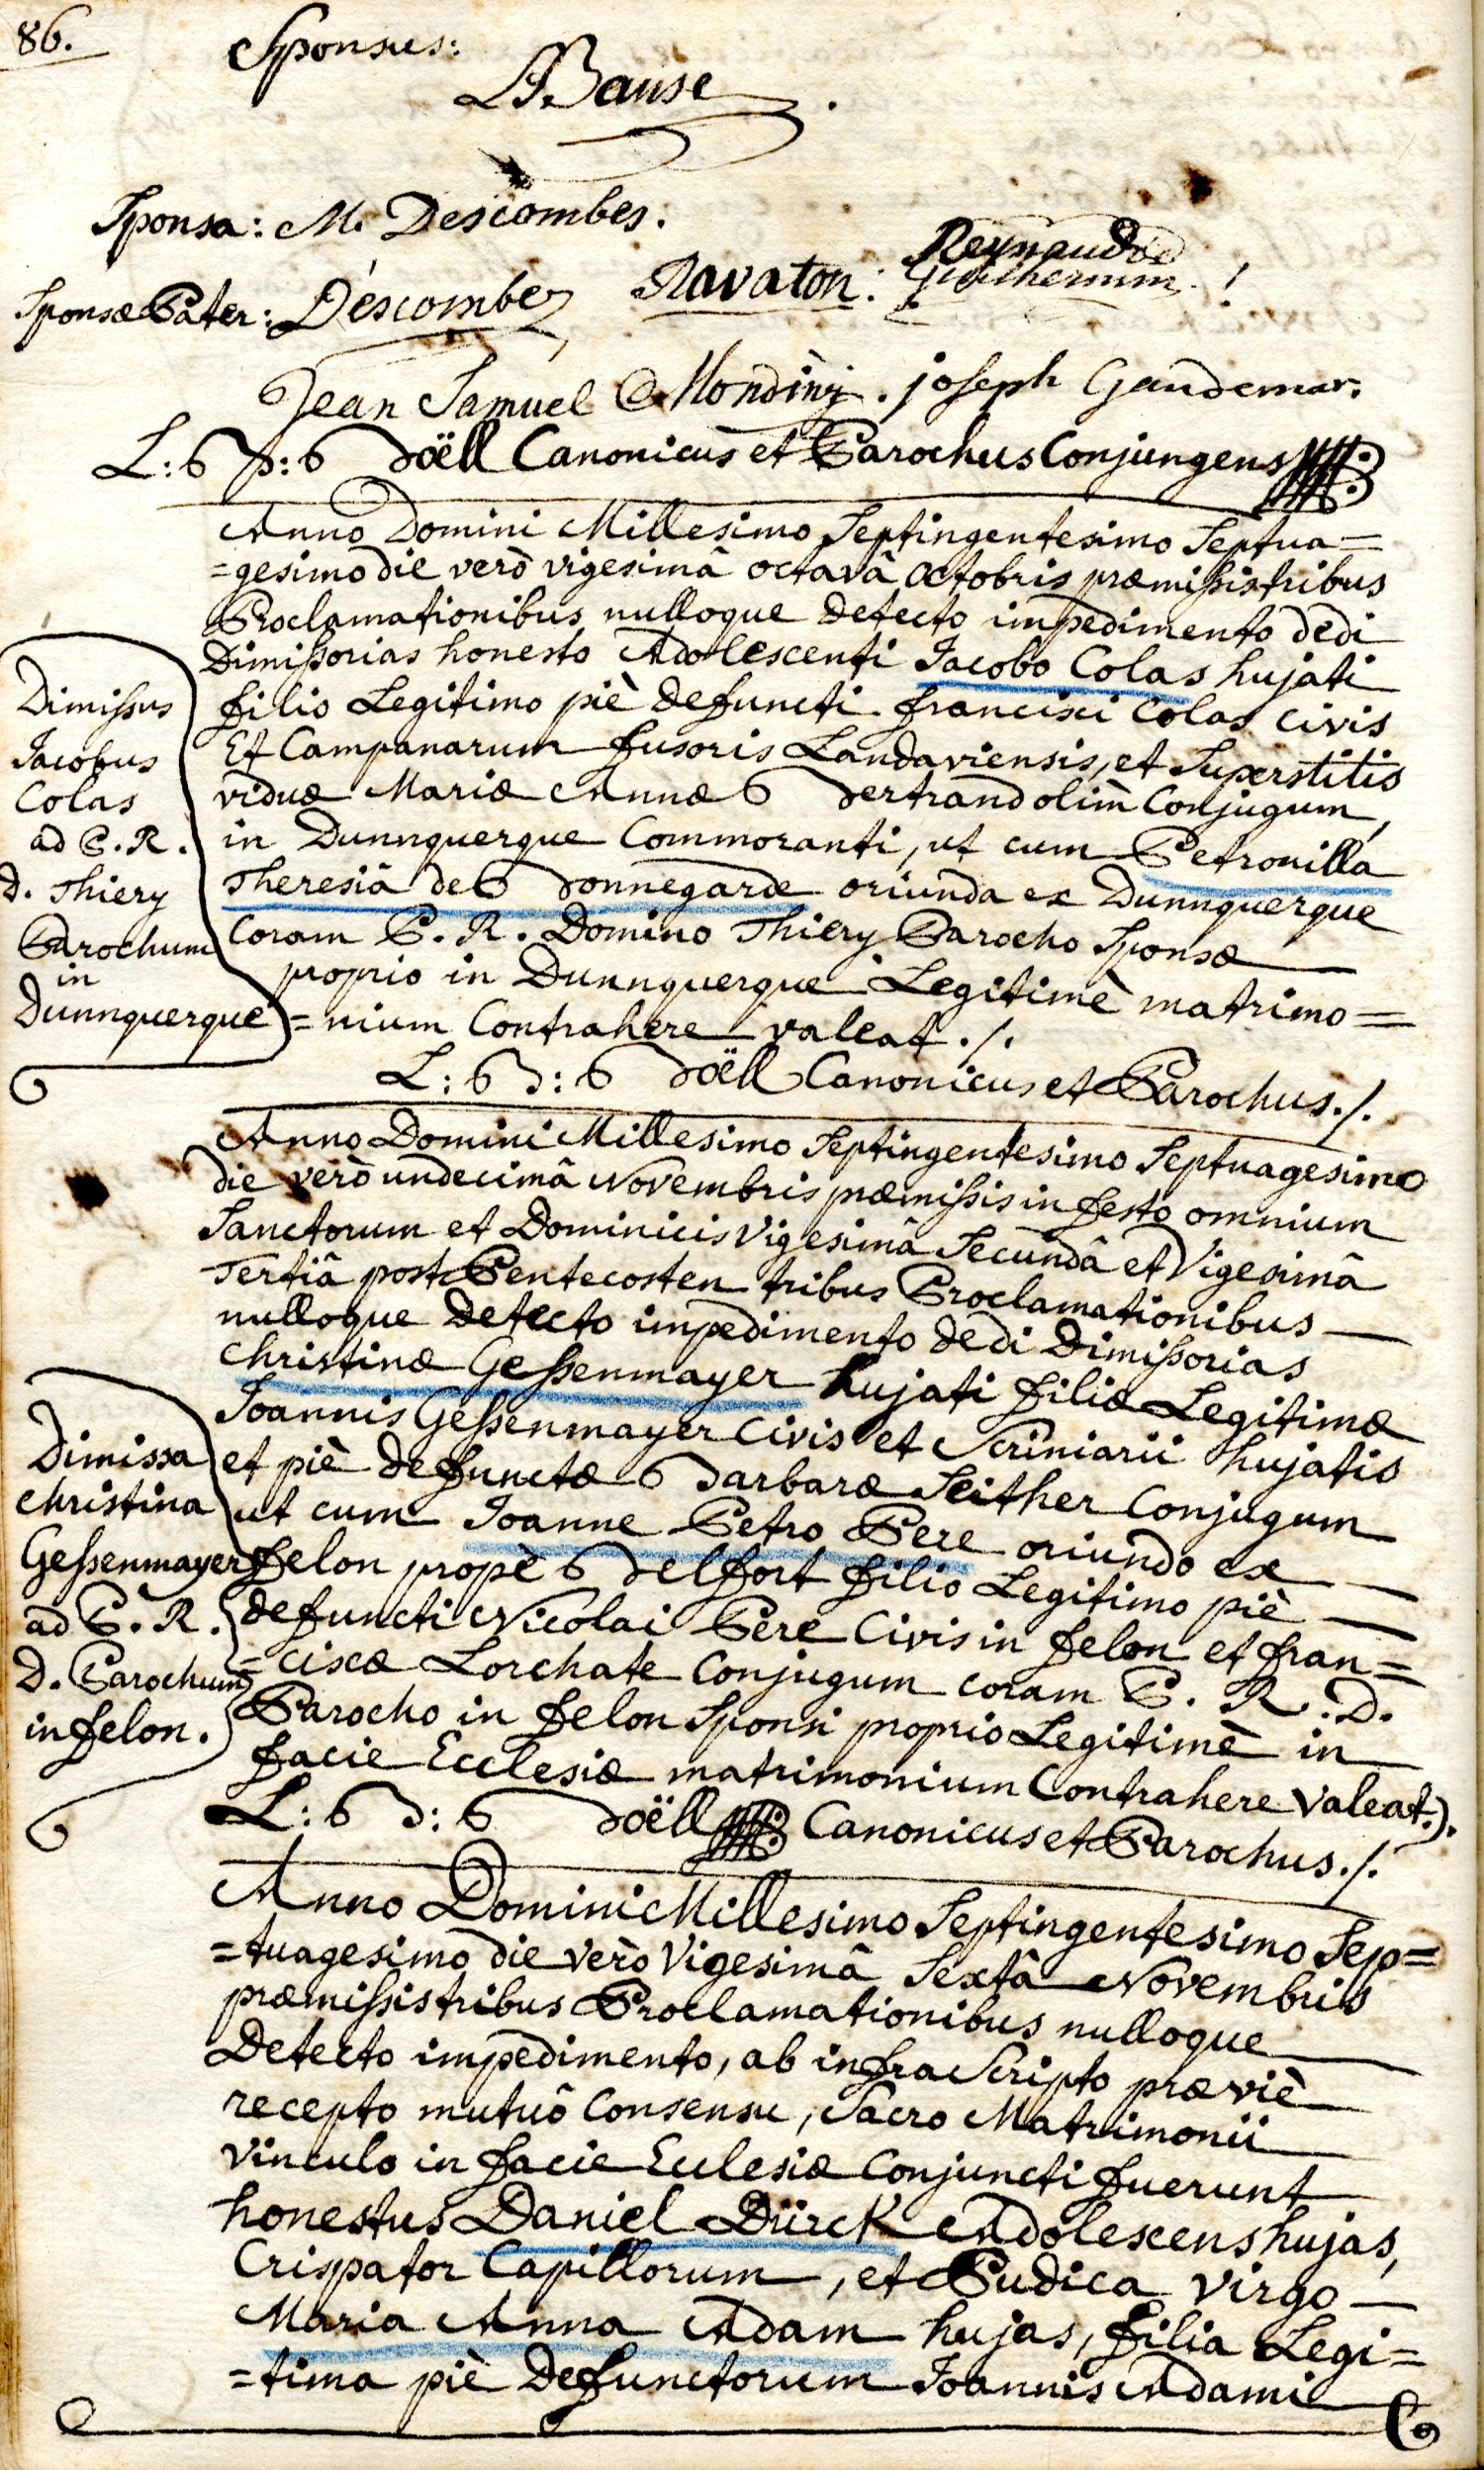 86.
Sponsus:
LABause
Sponsa: M. Descombes.
Reynaud
Sponsæ Pater: Descombes Ravaton:
Jean Samuel Mondini. joseph Gaudemar.
L: B: Boëll Canonicus et Parochus Conjungens
Anno Domini Millesimo Septingentesimo Septua=
=gesimo die verò vigesimâ octavâ octobris præmissis tribus
Proclamationibus nulloque Detecto impedimento dedi
Dimissorias honesto Adolescenti Jacobo Colas hujati
filio Legitimo piè Defuncti francisci Colas Civis
Et Campanarum fusoris Landaviensis, et Superstitis
viduæ Mariæ Annæ Bertrand olim Conjugum,
in Dunnquerque Commoranti, ut cum Petronillâ
Theresiâ de Bonnegarde oriunda ex Dunnquerque
Coram P. R. Domino Thiery Parocho Sponsæ
proprio in Dunnquerque Legitimè matrimo=
=nium Contrahere valeat ./.
L: B: Boëll Canonicus et Parochus ./.
Dimissus
Jacobus
Colas
ad P. R.
D. Thiery
Parochum
in
Dunnquerque
Anno Domini Millesimo Septingentesimo Septuagesimo
die verò undecimâ Novembris præmissis in festo omnium
Sanctorum et Dominicis Vigesimâ Secundâ et Vigesimâ
Tertiâ post Pentecosten tribus Proclamationibus
nulloque Detecto impedimento dedi Dimissorias
Christinæ Gessenmayer hujati filiæ Legitimæ
Joannis Gessenmayer Civis et Scriniarii hujatis
et piè defunctæ Barbaræ Seither Conjugum
ut cum Joanne Petro Pere oriundo ex
felon propè Belfort filio Legitimo piè
defuncti Nicolai Pere Civis in felon et fran=
=ciscæ Lorchate Conjugum coram P. R. D.
Parocho in felon Sponsi proprio Legitimè in
facie Ecclesiæ matrimonium Contrahere valeat ./.
L: B: Boëll Canonicus et Parochus ./.
Dimissa
Christina
Gessenmayer
ad P. R.
D. Parochum
in felon.
Anno Domini Millesimo Septingentesimo Sep=
=tuagesimo die verò Vigesimâ Sextâ Novembris
præmissis tribus Proclamationibus nulloque
Detecto impedimento, ab infra Scripto præviè
recepto mutuô Consensu, Sacro Matrimonii
vinculo in facie Ecclesiæ Conjuncti fuerunt
honestus Daniel Dürck Adolescens hujas,
Crispator Capillorum, et Pudica virgo
Maria Anna Adam hujas, filia Legi=
=tima piè Defunctorum Joannis Adami